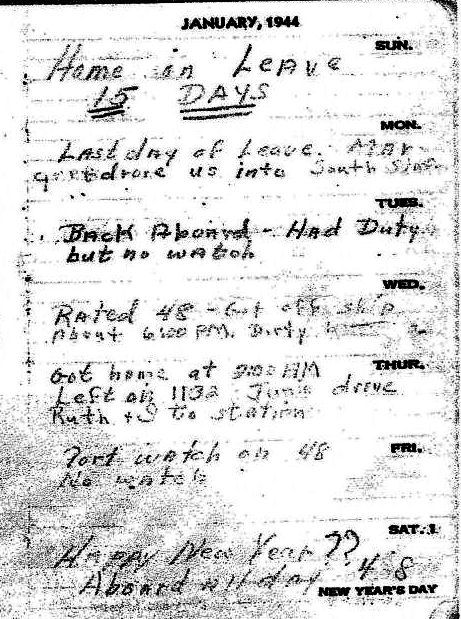 JANUARY, 1944
SUN.
Home on Leave
15 DAYS
MON.
Last day of Leave. Mar
drove us into South
TUES.
Back Aboard - Had Duty
but no watch
WED.
Rated 48 - Got off ship
About 6:00 PM. Dirty
THUR.
Got home at
Left on 1132 drove
Ruth + I to station
FRI.
Port watch on 48
No watch
SAT. 1
Happy New Year??
Aboard All day 48
NEW YEAR'S DAY